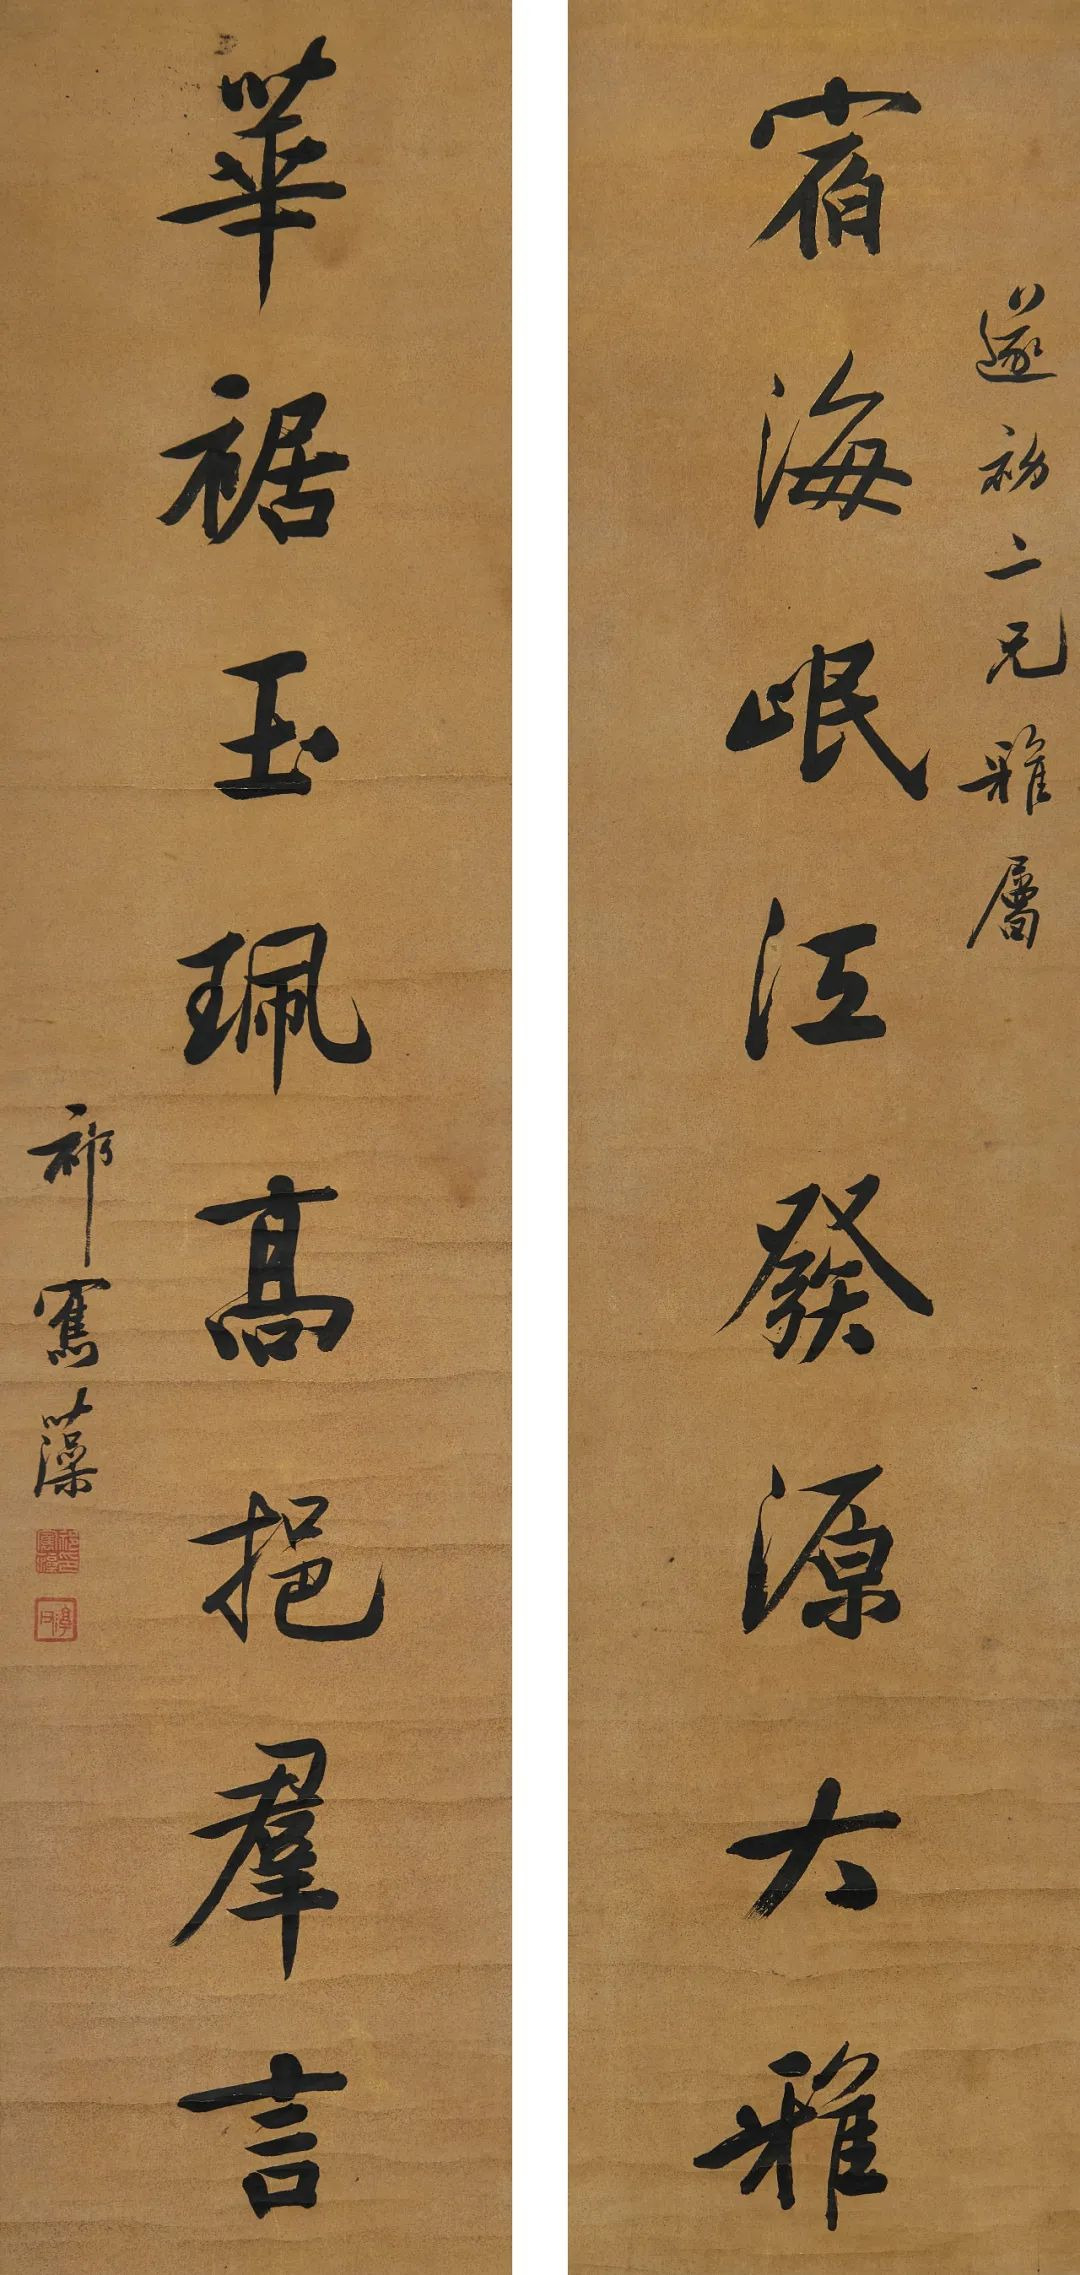 遂初二兄雅屬
宿海岷江發源大雅
華裾玉珮高挹羣言
祁寯藻